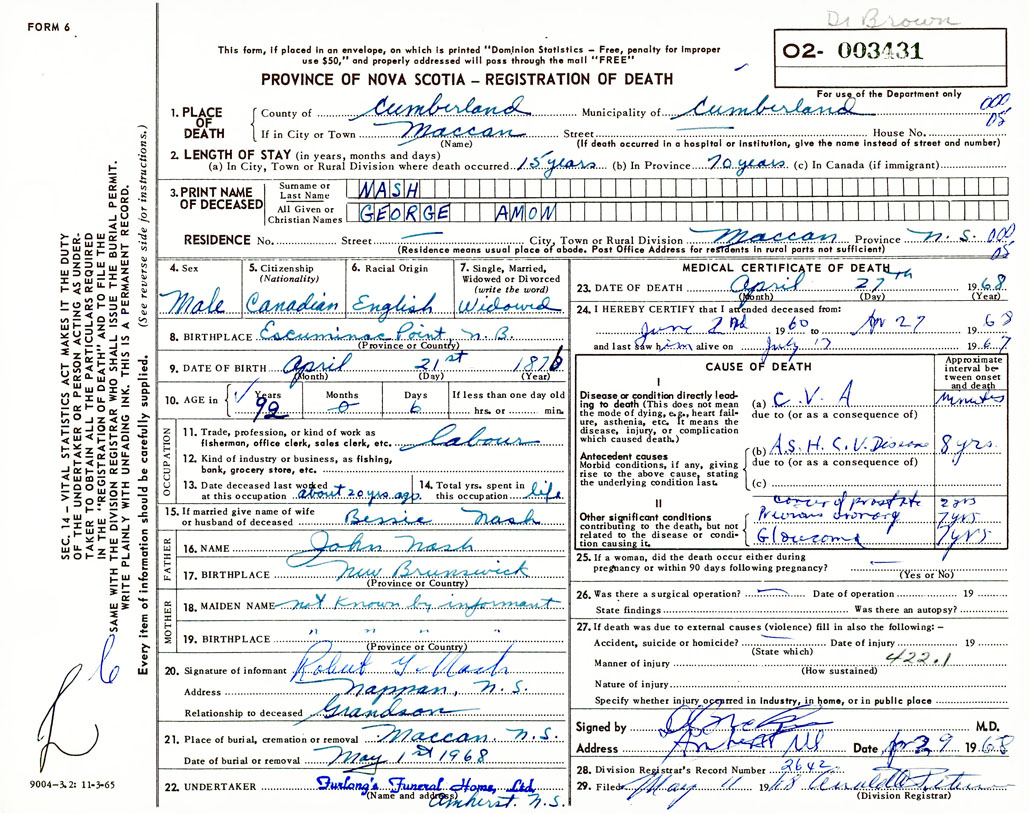 Dr Brown
FORM 6
This form, if placed in an envelope, on which is printed "Dominion Statistics – Free, penalty for improper
use $50," and properly addressed will pass through the mail "FREE"
O2- 003431
PROVINCE OF NOVA SCOTIA – REGISTRATION OF DEATH
For use of the Department only
1. PLACE OF DEATH County of Cumberland Municipality of Cumberland 000
If in City or Town Maccan Street — House No. 05
(Name) (If death occurred in a hospital or institution, give the name instead of street and number)
2. LENGTH OF STAY (in years, months and days)
(a) In City, Town or Rural Division where death occurred 15 years (b) In Province 70 years (c) In Canada (if immigrant)
3. PRINT NAME OF DECEASED Surname or Last Name NASH
All Given or Christian Names GEORGE AMON
RESIDENCE No. Street — City, Town or Rural Division Maccan Province N.S. 000
(Residence means usual place of abode. Post Office Address for residents in rural parts not sufficient) 05
4. Sex Male
5. Citizenship (Nationality) Canadian
6. Racial Origin English
7. Single, Married, Widowed or Divorced (write the word) Widowed
8. BIRTHPLACE Escuminac Point, N.B.
(Province or Country)
9. DATE OF BIRTH April 21st 1876
(Month) (Day) (Year)
10. AGE in Years 92 Months 0 Days 6 If less than one day old
hrs. or min.
OCCUPATION
11. Trade, profession, or kind of work as
fisherman, office clerk, sales clerk, etc. labour
12. Kind of industry or business, as fishing,
bank, grocery store, etc.
13. Date deceased last worked
at this occupation about 20 yrs. ago.
14. Total yrs. spent in
this occupation life
15. If married give name of wife
or husband of deceased Bessie Nash
FATHER
16. NAME John Nash
17. BIRTHPLACE New Brunswick
(Province or Country)
MOTHER
18. MAIDEN NAME not known by informant
19. BIRTHPLACE " " " "
(Province or Country)
20. Signature of informant Robert Nash
Address Nappan, N.S.
Relationship to deceased Grandson
21. Place of burial, cremation or removal Maccan N.S.
Date of burial or removal May 1st 1968
22. UNDERTAKER Furlong's Funeral Home, Ltd
(Name and address) Amherst, N.S.
MEDICAL CERTIFICATE OF DEATH
23. DATE OF DEATH April 27th 1968
(Month) (Day) (Year)
24. I HEREBY CERTIFY that I attended deceased from:
June 2nd 1960 to Apr 27 1968
and last saw him alive on July 17 1967
CAUSE OF DEATH
Approximate interval between onset and death
I
Disease or condition directly leading to death (This does not mean the mode of dying, e.g., heart failure, asthenia, etc. It means the disease, injury, or complication which caused death.)
(a) C. V. A minutes
due to (or as a consequence of)
Antecedent causes
Morbid conditions, if any, giving rise to the above cause, stating the underlying condition last.
(b) A.S.H.C.V. Disease 8 yrs.
due to (or as a consequence of)
(c)
II
Other significant conditions
contributing to the death, but not related to the disease or condition causing it.
Cancer of prostate 2 yrs
Previous coronary 7 yrs
Glaucoma 7 yrs
25. If a woman, did the death occur either during
pregnancy or within 90 days following pregnancy? —
(Yes or No)
26. Was there a surgical operation? — Date of operation 19
State findings Was there an autopsy?
27. If death was due to external causes (violence) fill in also the following: –
Accident, suicide or homicide? — Date of injury 19
(State which)
Manner of injury 422.1
(How sustained)
Nature of injury
Specify whether injury occurred in Industry, in home, or in public place
Signed by M.D.
Address Amherst NS Date Apr 29 1968
28. Division Registrar's Record Number 2642
29. Filed May 11 1968
(Division Registrar)
SEC. 14 – VITAL STATISTICS ACT MAKES IT THE DUTY
OF THE UNDERTAKER OR PERSON ACTING AS UNDER-
TAKER TO OBTAIN ALL THE PARTICULARS REQUIRED
IN THE "REGISTRATION OF DEATH" AND TO FILE THE
SAME WITH THE DIVISION REGISTRAR WHO SHALL ISSUE THE BURIAL PERMIT.
WRITE PLAINLY WITH UNFADING INK. THIS IS A PERMANENT RECORD.
Every item of information should be carefully supplied. (See reverse side for instructions.)
9004-3.2: 11-3-65